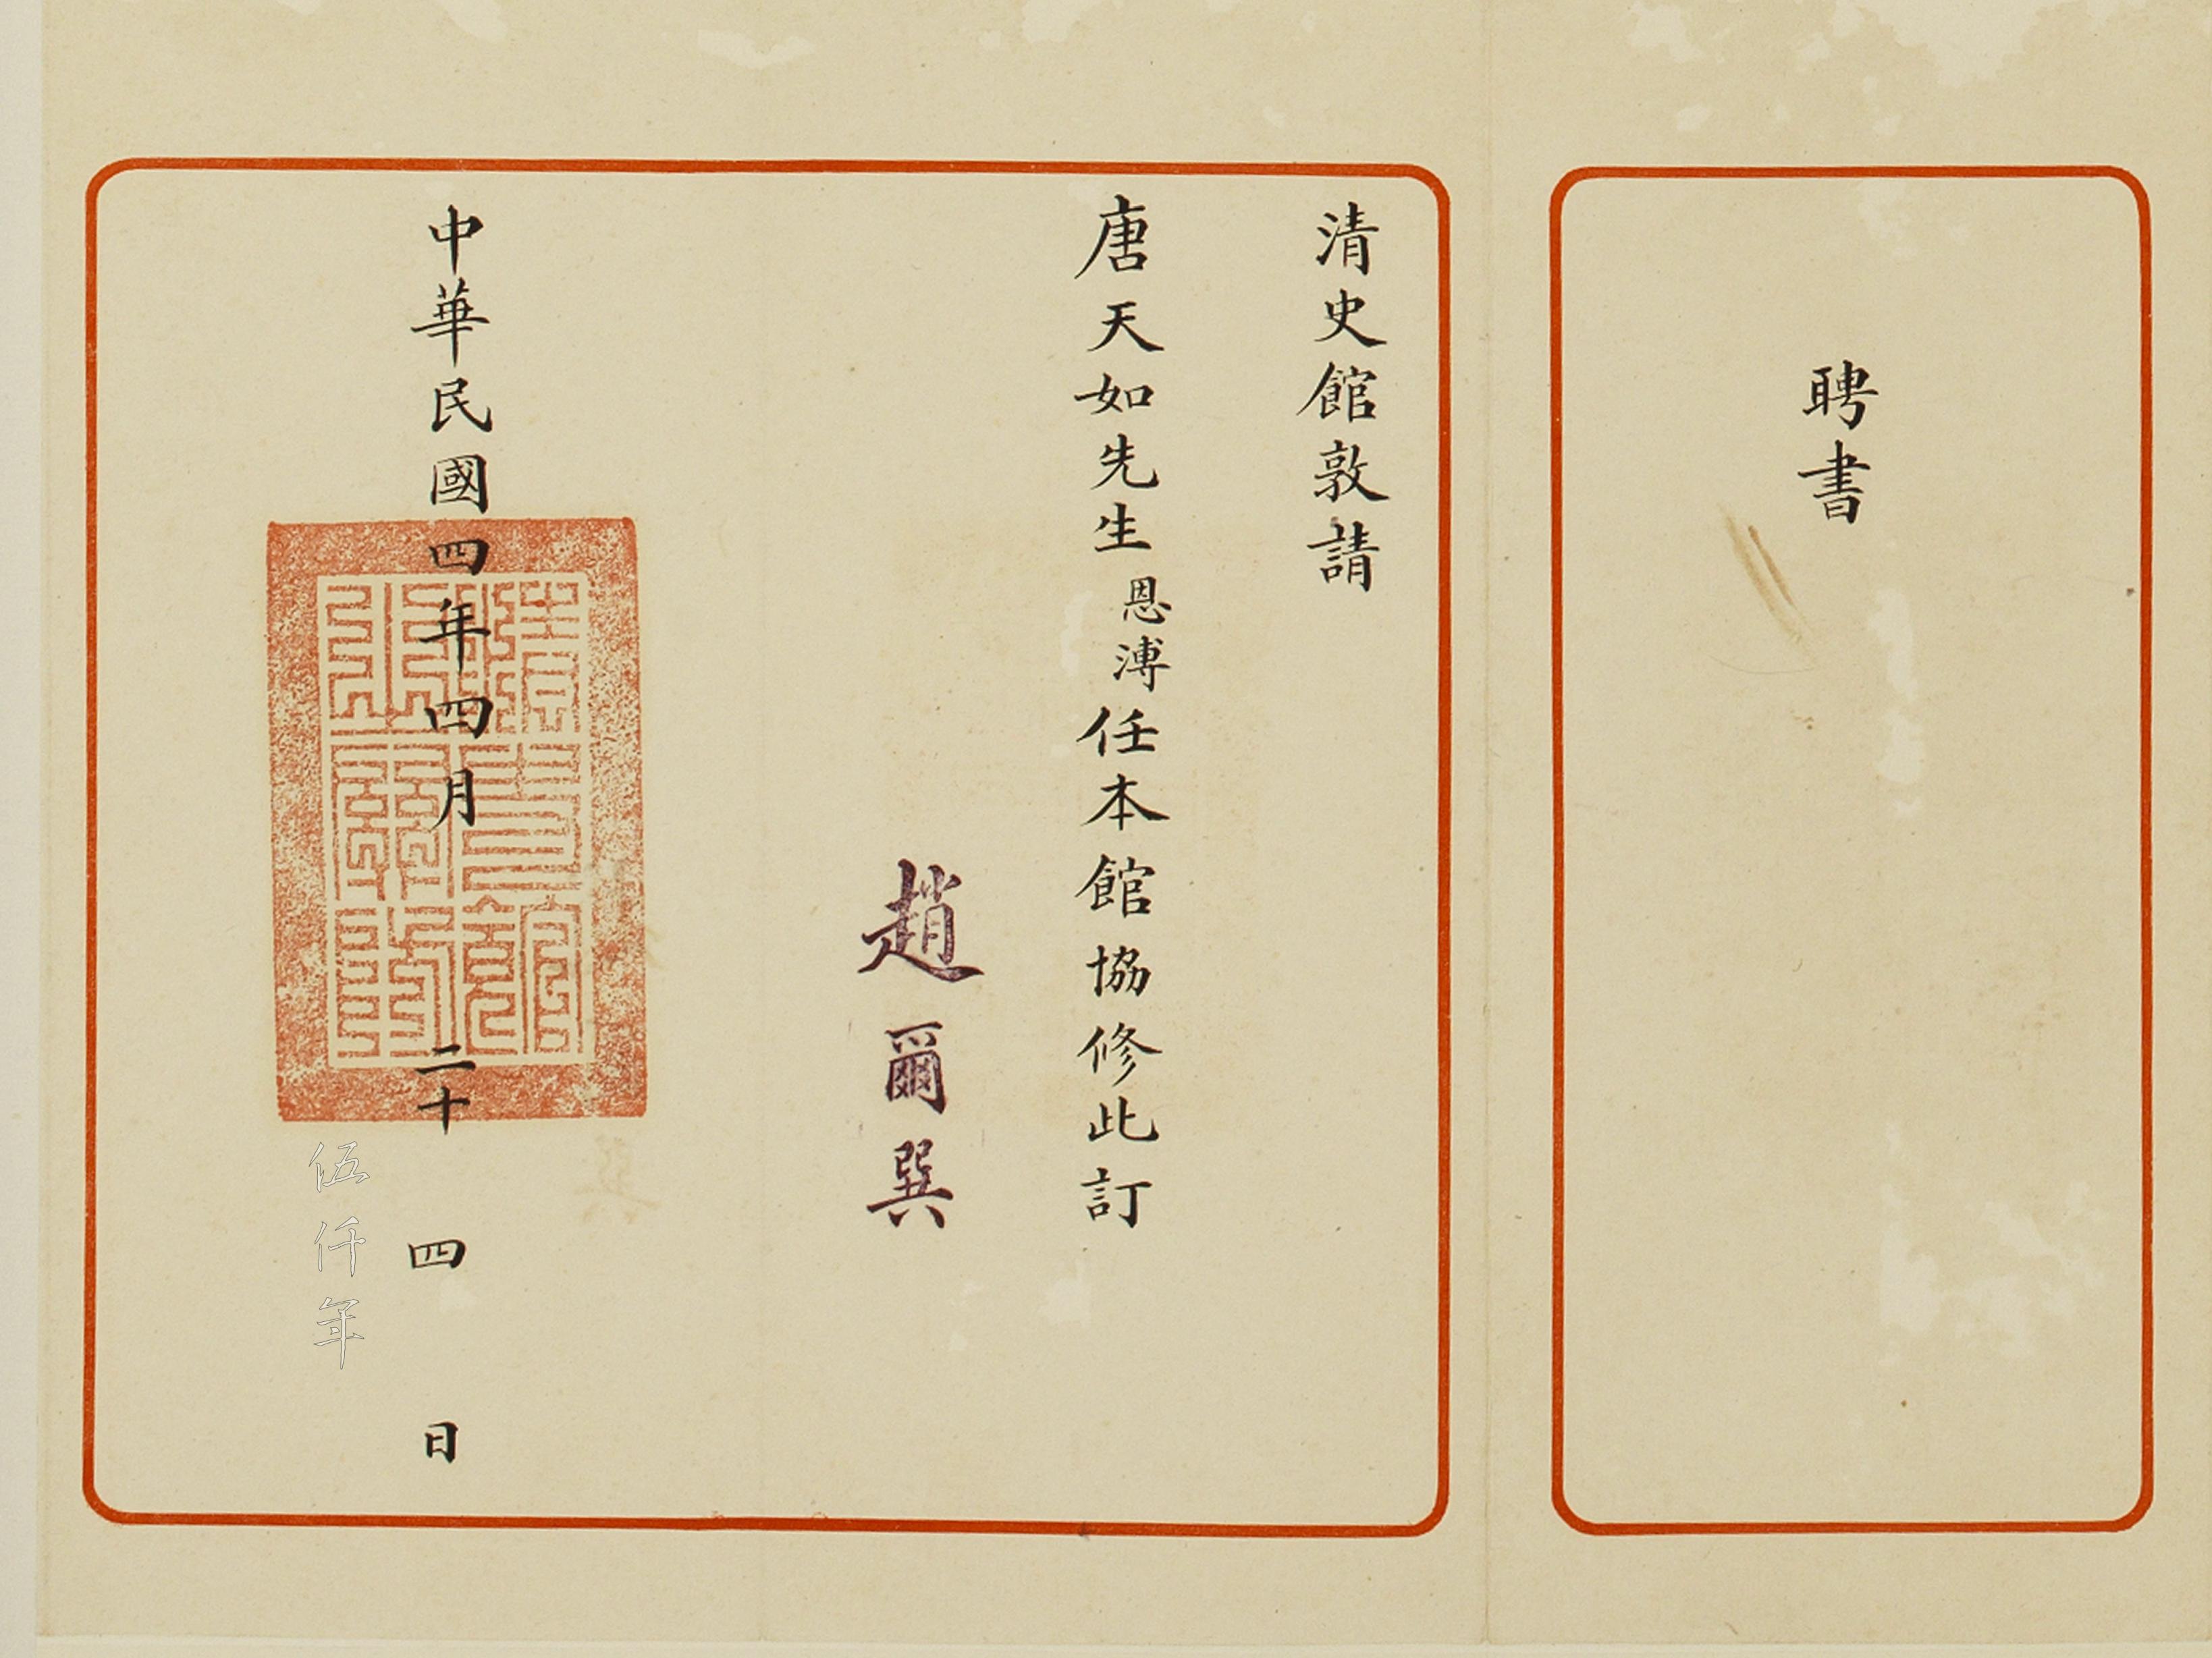 聘書
清史館敦請
唐天如先生恩溥任本館協修此訂
趙爾巽
中華民國四年四月二十四日
伍仟年